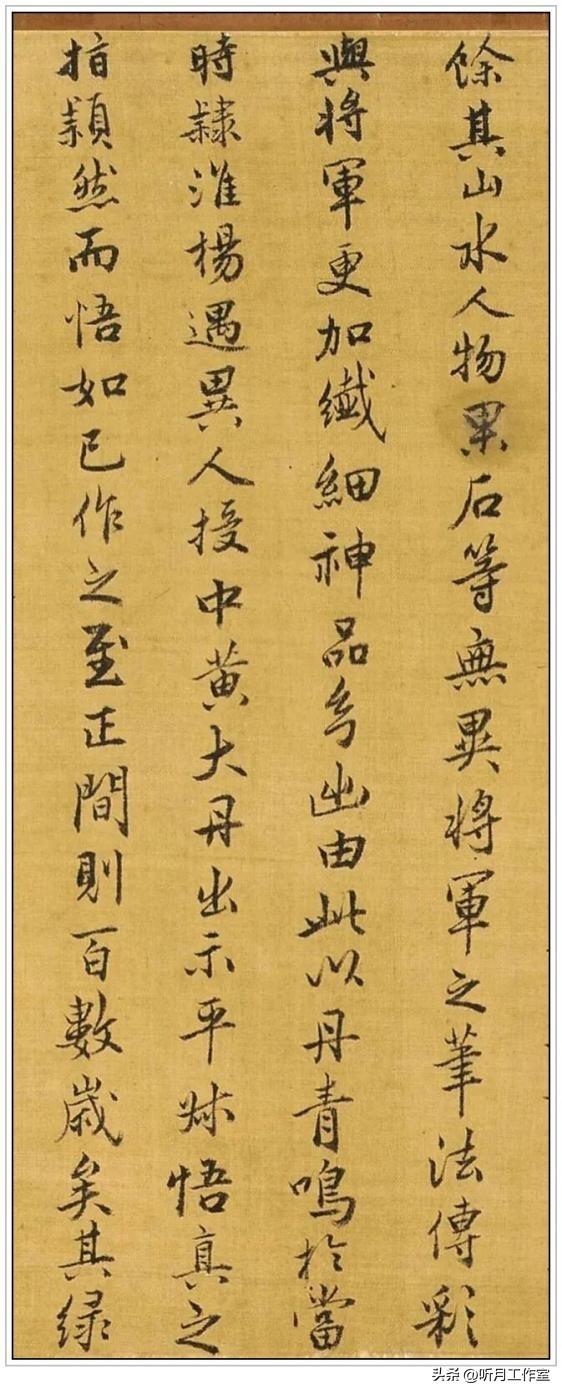 餘其山水人物窠石等無異將軍之筆法傅彩
與將軍更加纖細神品幻出由此以丹青鳴於當
時隸淮楊遇異人授中黃大丹出示平叔悟真之
指頴然而悟如已作之至正間則百數歲矣其緑
头条 @听月工作室